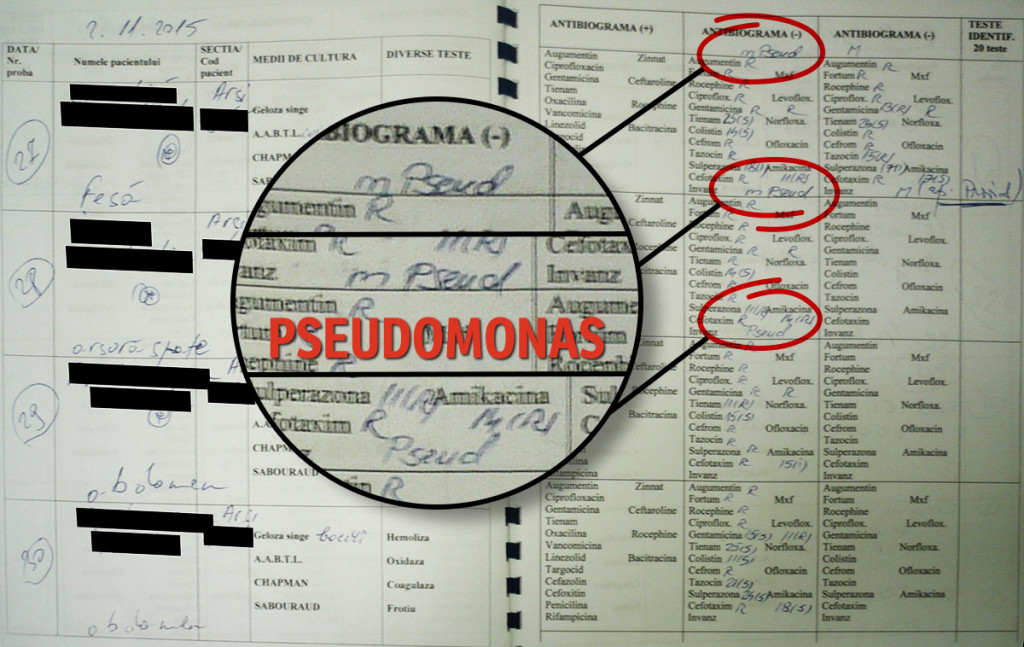 2.11.2015
DATA/ Nr. proba
Numele pacientului
SECTIA/ Cod pacient
MEDII DE CULTURA
DIVERSE TESTE
27
Arsi
Geloza singe
A.A.B.T.L.
CHAPM
SAB
fesă
28
Arsi
arsură spate
29
A.A
CHAPM
SABOURAUD
abdomen
30
Arsi
Geloza singe
Hemoliza
A.A.B.T.L.
Oxidaza
CHAPMAN
Coagulaza
SABOURAUD
Frotiu
abdomen
BIOGRAMA (-)
m Pseud
gumentin R
Aug
otaxim R 11(R)
Cefota
anz.
m Pseud
Invanz
gumentin R
Augume
PSEUDOMONAS
ephine
Rocephin
ulperazona 11(R) Amikacina
Sul
fotaxim R 14(R)
Pseud
ntin R
ANTIBIOGRAMA (+)
ANTIBIOGRAMA (-)
ANTIBIOGRAMA (-)
TESTE IDENTIF. 20 teste
m Pseud
M
Augumentin Zinnat
Ciprofloxacin
Gentamicina Ceftaroline
Tienam
Oxacilina Rocephine
Vancomicina
Linezolid Bacitracina
Augumentin R
Fortum R Mxf
Rocephine R
Ciproflox. R Levoflox.
Gentamicina R R
Tienam 25(S) Norfloxa.
Colistin 14(S)
Cefrom R Ofloxacin
Tazocin R
Amikacina
Cefotaxim R 11(R)
Invanz m Pseud
Augumentin R
Fortum R Mxf
Rocephine R
Ciproflox. R Levoflox.
Gentamicina 13(R) R
Tienam 26(S) Norfloxa.
Colistin R
Cefrom R Ofloxacin
Tazocin 15(R)
Sulperazona Amikacina
Cefotaxim R 17(S)
Invanz M
Zinnat
Ceftaroline
Rocephine
Bacitracina
Augumentin R
Fortum R Mxf
Rocephine R
Ciproflox. R Levoflox.
Gentamicina R R
Tienam Norfloxa.
Colistin 14(S)
Cefrom R Ofloxacin
Tazocin R
Sulperazona 11(R) Amikacina
Cefotaxim R 14(R)
Invanz Pseud
Augumentin
Fortum Mxf
Rocephine
Ciproflox. Levoflox.
Gentamicina
Tienam Norfloxa.
Colistin
Cefrom Ofloxacin
Tazocin
Sulperazona Amikacina
Cefotaxim
Invanz
Zinnat
Ceftaroline
Rocephine
Bacitracina
Augumentin R
Fortum R Mxf
Rocephine R
Ciproflox. R Levoflox.
Gentamicina R R
Tienam 11(R) Norfloxa.
Colistin 15(S)
Cefrom R Ofloxacin
Tazocin R
Sulperazona R Amikacina
Cefotaxim R 15(i)
Invanz
Augumentin
Fortum Mxf
Rocephine
Ciproflox. Levoflox.
Gentamicina
Tienam Norfloxa.
Colistin
Cefrom Ofloxacin
Tazocin
Sulperazona Amikacina
Cefotaxim
Invanz
Augumentin Zinnat
Ciprofloxacin
Gentamicina Ceftaroline
Tienam
Oxacilina Rocephine
Vancomicina
Linezolid Bacitracina
Targocid
Cefazolin
Cefoxitin
Penicilina
Rifampicina
Augumentin R
Fortum R Mxf
Rocephine R
Ciproflox. R Levoflox.
Gentamicina 11(R)
Tienam 25(S) Norfloxa.
Colistin 11(S)
Cefrom R Ofloxacin
Tazocin 21(S)
Sulperazona 25(S) Amikacina
Cefotaxim R 18(S)
Invanz
Augumentin
Fortum Mxf
Rocephine
Ciproflox. Levoflox.
Gentamicina
Tienam Norfloxa.
Colistin
Cefrom Ofloxacin
Tazocin
Sulperazona Amikacina
Cefotaxim
Invanz